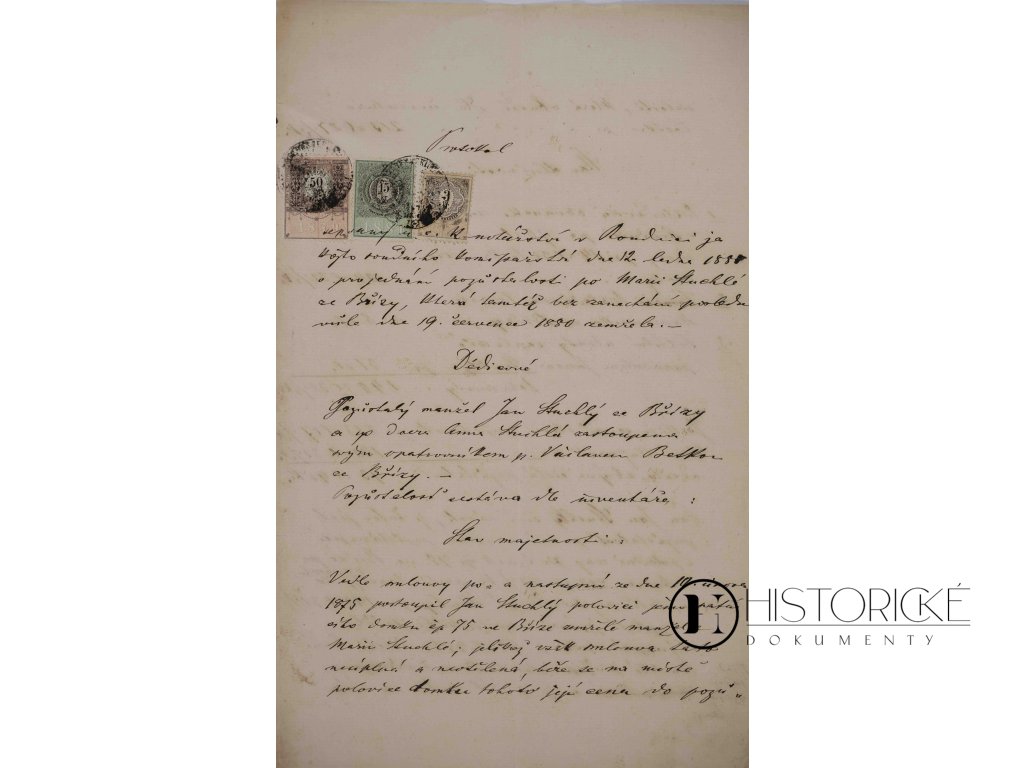 Protokol
50
15
5
sepsaný v c. k. notářství v Roudnici ja
kožto soudního komisařství dne 12. ledna 1881
o projednání pozůstalosti po Marii Stuchlé
ze Břízy, která tamtéž bez zanechání poslední
vůle dne 19. července 1880 zemřela. –
Dědicové
Pozůstalý manžel Jan Stuchlý ze Břízy
a dcera Anna Stuchlá zastoupena
svým opatrovníkem p. Václavem
ze Břízy. –
Pozůstalost sestává dle inventáře :
Stav majetnosti :
Vedle smlouvy po= a nástupní ze dne února
1875 postoupil Jan Stuchlý polovici
domku čp 75 ve Bříze zemřelé manželce
Marii Stuchlé; jelikož však smlouva tato
neúplná a neoscílená, béře se na místě
polovice domku tohoto její cena do pozů„
HISTORICKÉ
DOKUMENTY